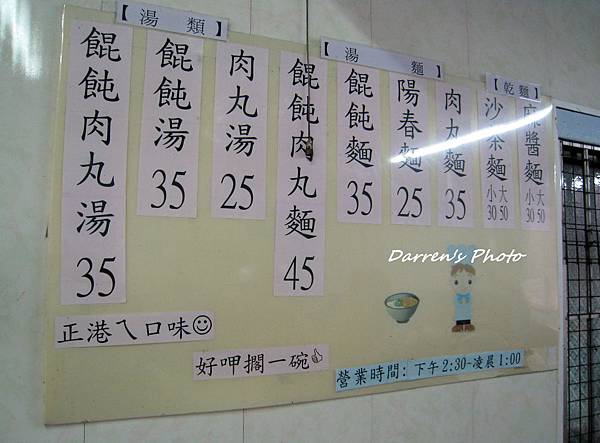 【湯類】
餛飩肉丸湯 35
餛飩湯 35
肉丸湯 25
【湯麵】
餛飩肉丸麵 45
餛飩麵 35
陽春麵 25
肉丸麵 35
【乾麵】
沙茶麵 小30 大50
麻醬麵 小30 大50
正港ㄟ口味
好呷擱一碗
營業時間：下午2:30-凌晨1:00
Darren's Photo